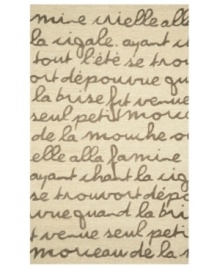 mine crielle alla
la cigale. ayant c
tout l'été se trou
ort dépourvue qua
la brise fut venue
seul petit morce
de la mouche ou
elle alla famine
ayant chant la ciga
se trouvort dépo
vue quand la bri
t venue seul petit
morceau de la m